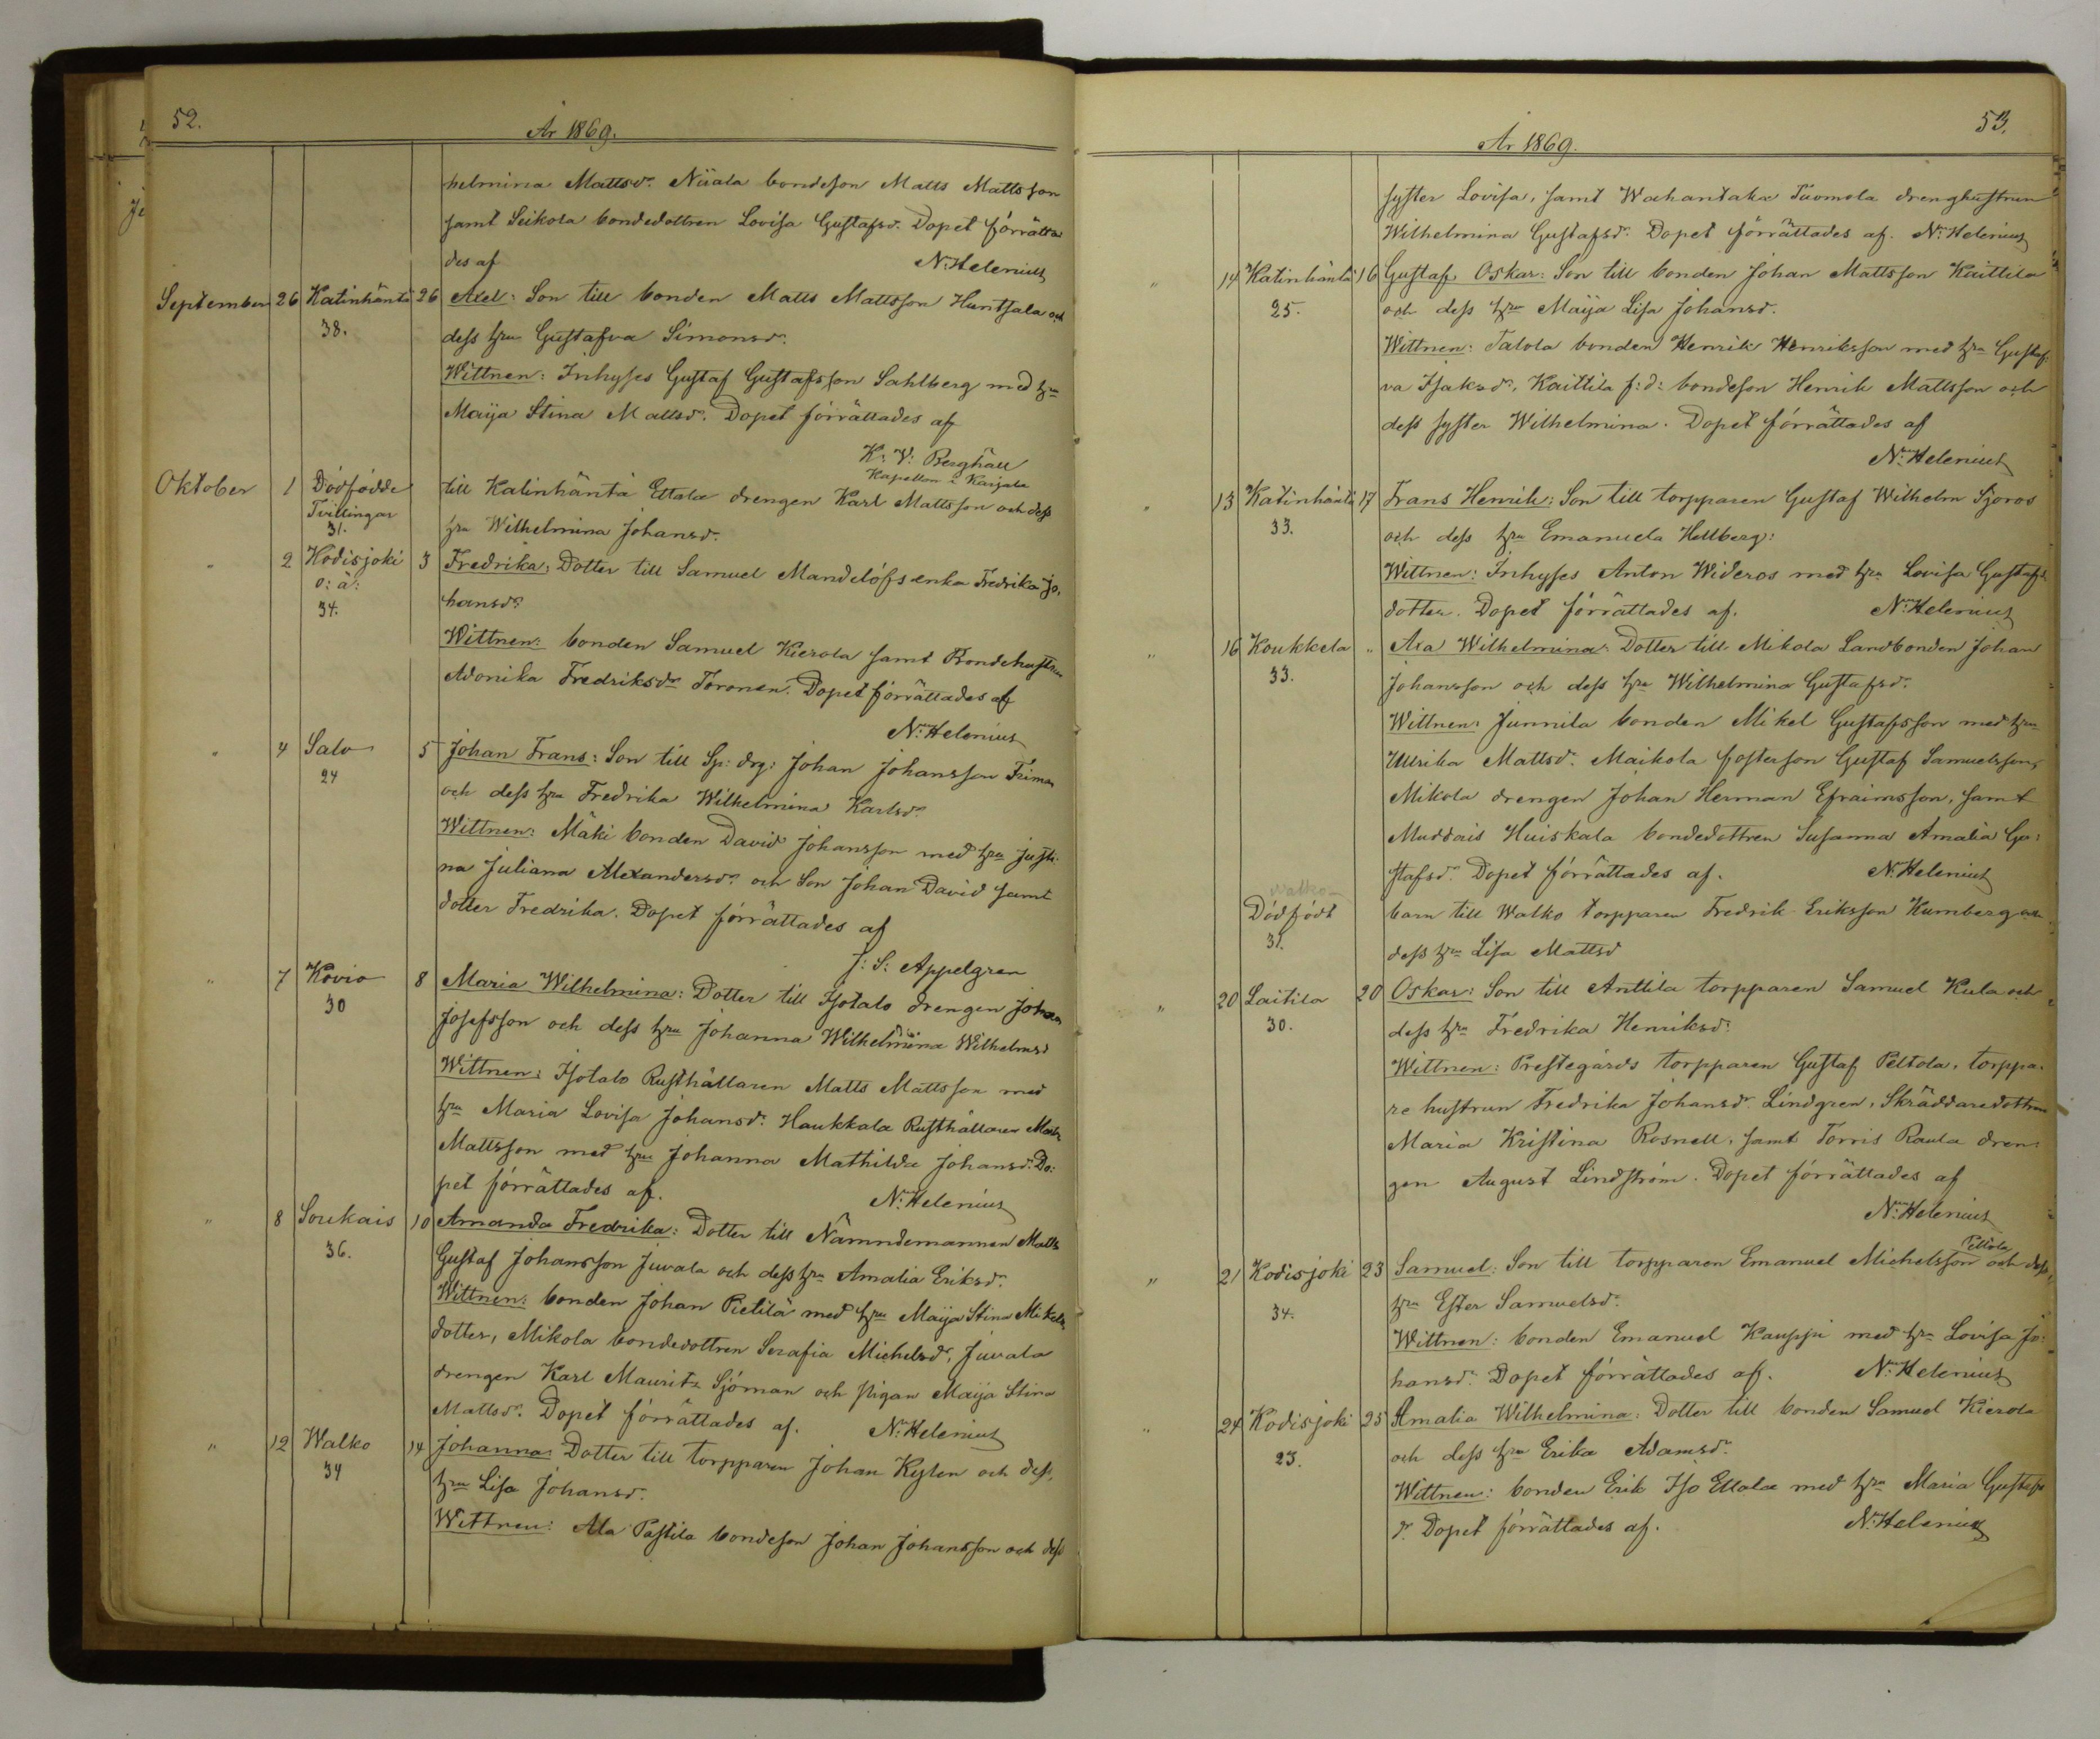 52.
År 1869.
helmina Mattsdr. Niiala bondeson Matts Mattsson
samt Seikola bondedottren Lovisa Gustafsdr. Dopet förrätta-
des af N. Helenius
September 26 Katinhäntä 26 Axel: Son till bonden Matts Mattsson Huntsala och
38. dess hru Gustafva Simonsdr.
Wittnen: Inhyses Gustaf Gustafsson Sahlberg med hru
Maija Stina Mattsdr. Dopet förrättades af
K: V: Berghäll
Kapellan i Karjala
Oktober 1 Dödfödde till Katinhäntä Ettala drengen Karl Mattsson och dess
Tvillingar
31. hru Wilhelmina Johansdr.
" 2 Kodisjoki 3 Fredrika: Dotter till Samuel Mandelöfs enka Fredrika Jo-
o: ä:
34. hansdr.
Wittnen: bonden Samuel Kierola samt Bondehustrun
Adonika Fredriksdr Toronen. Dopet förrättades af
N. Helenius
" 4 Salo 5 Johan Frans: Son till Sp: drg: Johan Johansson Friman
24 och dess hru Fredrika Wilhelmina Karlsdr.
Wittnen: Mäki bonden David Johansson med hru Justi-
na Juliana Alexandersdr. och Son Johan David samt
dotter Fredrika. Dopet förrättades af
J: S: Appelgren
" 7 Kovio 8 Maria Wilhelmina: Dotter till Isotalo drengen Johan
30 Josefsson och dess hru Johanna Wilhelmina Wilhelmsd
Wittnen: Isotalo Rusthållaren Matts Mattsson med
hru Maria Lovisa Johansdr. Haukkala Rusthållaren Matts
Mattsson med hru Johanna Mathilda Johansdr. Do:
pet förrättades af. N. Helenius
" 8 Soukais 10 Amanda Fredrika: Dotter till Nämndemannen Matts
36. Gustaf Johansson Juvala och dess hru Amalia Eriksdr.
Wittnen: bonden Johan Pietilä med hru Maija Stina Mikels-
dotter, Mikola bondedottren Serafia Michelsdr, Juvala
drengen Karl Mauritz Sjöman och pigan Maija Stina
Mattsdr. Dopet förrättades af. N. Helenius
" 12 Walko 14 Johanna: Dotter till torpparen Johan Kylen och dess
34 hru Lisa Johansdr.
Wittnen: Ala Pastila bondeson Johan Johansson och dess
53.
År 1869.
syster Lovisa, samt Wahantaka Tuomola drenghustrun
Wilhelmina Gustafsdr. Dopet förrättades af. N. Helenius
" 14 Katinhäntä 16 Gustaf Oskar: Son till bonden Johan Mattsson Kaittila
25. och dess hru Maija Lisa Johansdr.
Wittnen: Talola bonden Henrik Henriksson med hru Gustaf-
va Isaksdr, Kaittila f:d: bondeson Henrik Mattsson och
dess syster Wilhelmina. Dopet förrättades af
N. Helenius
" 13 Katinhäntä 17 Frans Henrik: Son till torpparen Gustaf Wilhelm Sjoros
33. och dess hru Emanuela Hellberg:
Wittnen: Inhyses Anton Wideros med hru Lovisa Gustafs-
dotter. Dopet förrättades af. N. Helenius
" 16 Koukkela " Axa Wilhelmina: Dotter till Mikola Landbonden Johan
33. Johansson och dess hru Wilhelmina Gustafsdr.
Wittnen: Junnila bonden Mikel Gustafsson med hru
Ullrika Mattsdr. Maikola fosterson Gustaf Samuelsson,
Mikola drengen Johan Herman Efraimsson, samt
Mudais Huiskala bondedottren Susanna Amalia Gu:
stafsdr. Dopet förrättades af. N. Helenius
Walko
Dödfödt barn till Walko torpparen Fredrik Eriksson Kumberg och
31. dess hru Lisa Mattsd
" 20 Laitila 20 Oskar: Son till Anttila torpparen Samuel Kula och
30. dess hru Fredrika Henriksdr.
Wittnen: Prestegårds torpparen Gustaf Peltola, torppa-
re hustrun Fredrika Johansdr. Lindgren, Skräddaredottren
Maria Kristina Rosnell, samt Torris Raula dren-
gen August Lindström. Dopet förrättades af
N. Helenius
Peltola
" 21 Kodisjoki 23 Samuel: Son till torpparen Emanuel Michelsson och dess
34. hru Ester Samuelsdr.
Wittnen: bonden Emanuel Kauppi med hru Lovisa Jo:
hansdr. Dopet förrättades af. N. Helenius
" 24 Kodisjoki 25 Amalia Wilhelmina: Dotter till bonden Samuel Kierola
23. och dess hru Erika Adamsdr.
Wittnen: bonden Erik Iso Ettala med hru Maria Gustafs
dr. Dopet förrättades af. N. Helenius